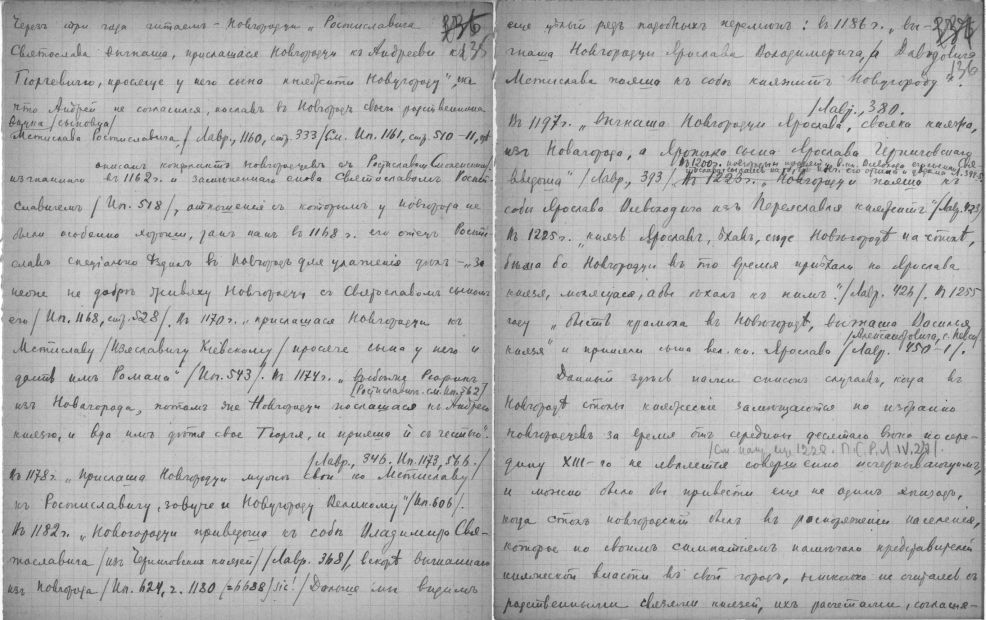 Черезъ три года читаемъ - Новгородци „Ростиславича
Святослава выгнаша, прислашася Новгородци къ Андрееви къ 135
Гюргевичю, просяще у него сына княжити Новугороду", на
что Андрей не согласился, пославъ въ Новгородъ своего родственника
внука /сыновца/
Мстислава Ростиславича, / Лавр., 1160, стр. 333 / См. Ип. 1161, стр. 510-11, где
описанъ конфликтъ новгородцевъ съ Ростиславомъ Смоленскимъ
изгнаннаго въ 1162 г. и замѣненнаго снова Святославомъ Рости-
славичемъ / Ип. 518 /, отношенія съ которымъ у Новгорода не
были особенно хороши, такъ какъ въ 1168 г. его отецъ Рости-
славъ спеціально ѣздилъ въ Новгородъ для улаженія дѣлъ - „за-
неже не добрѣ живяху Новгородци съ Святославомъ сыномъ
его / Ип. 1168, стр. 528 /. Въ 1170 г. „прислашася Новгородци къ
Мстиславу / Изяславичу Кіевскому / просяче сына у него и
дасть имъ Романа" / Ип. 543 /. Въ 1174 г. „выбѣжа Рюрикъ
[Ростиславич. см. Ип. 562]
изъ Новагорода, потомъ же Новгородци послашася къ Андрею
князю, и вда имъ дѣтя свое Гюргя, и прияша й съ честью".
/ Лавр., 346. Ип. 1173, 566. /
Въ 1178 г. „Прислаша Новгородци мужи свои ко Мстиславу /
къ Ростиславичу, зовуче и Новугороду Великому" / Ип. 606 /.
Въ 1182 г. „Новогородци приведоша къ собѣ Владимира Свя-
тославича / изъ Черниговскихъ князей / / Лавр. 368 /, вскорѣ выгнаннаго
изъ Новгорода / Ип. 624, г. 1180 (=6688) sic! / Дальше мы видимъ
еще цѣлый рядъ подобныхъ перемѣнъ: въ 1186 г. „вы-
гнаша Новгородци Ярослава Володимерича, а Давыдовича 136
Мстислава пояша къ собѣ княжитъ Новугороду".
/ Лавр., 380.
Въ 1197 г. „выгнаша Новгородци Ярослава, свояка княжа,
изъ Новагорода, а Ярополка сына Ярослава Черниговскаго
введоша" / Лавр., 393 /, Въ 1223 г. „Новгородци пояша къ
собѣ Ярослава Всеволодича изъ Переяславля княжитъ" / Лавр. 423,
Въ 1225 г. „князь Ярославъ, ѣхавъ, сяде Новѣгородѣ на столѣ,
бяша бо Новгородци въ то время приѣхали по Ярослава
князя, молящася, абы ѣхалъ къ нимъ". / Лавр. 426 /. Въ 1255
году „бысть крамола въ Новѣгородѣ, выгнаша Василья
/ Александровича, с. Невск. /
князя" и привели сына вел. кн. Ярослава / Лавр. 450-1 /.
Данный здѣсь нами списокъ случаевъ, когда въ
Новгородѣ столъ княжескій замѣщается по избранію
новгородцевъ за время отъ середины десятаго вѣка по сере-
/ См. напр. еще 1222. П.С.Р.Л. IV. 27 /.
дину XIII-го не является совершенно исчерпывающимъ,
и можно было бы привести еще не одинъ эпизодъ,
когда столъ новгородскій былъ въ распоряженіи населенія,
которое по своимъ симпатіямъ назначало представителей
княжеской власти въ свой городъ, нисколько не считаясь съ
родственными связями князей, ихъ расчетами, соглаше-